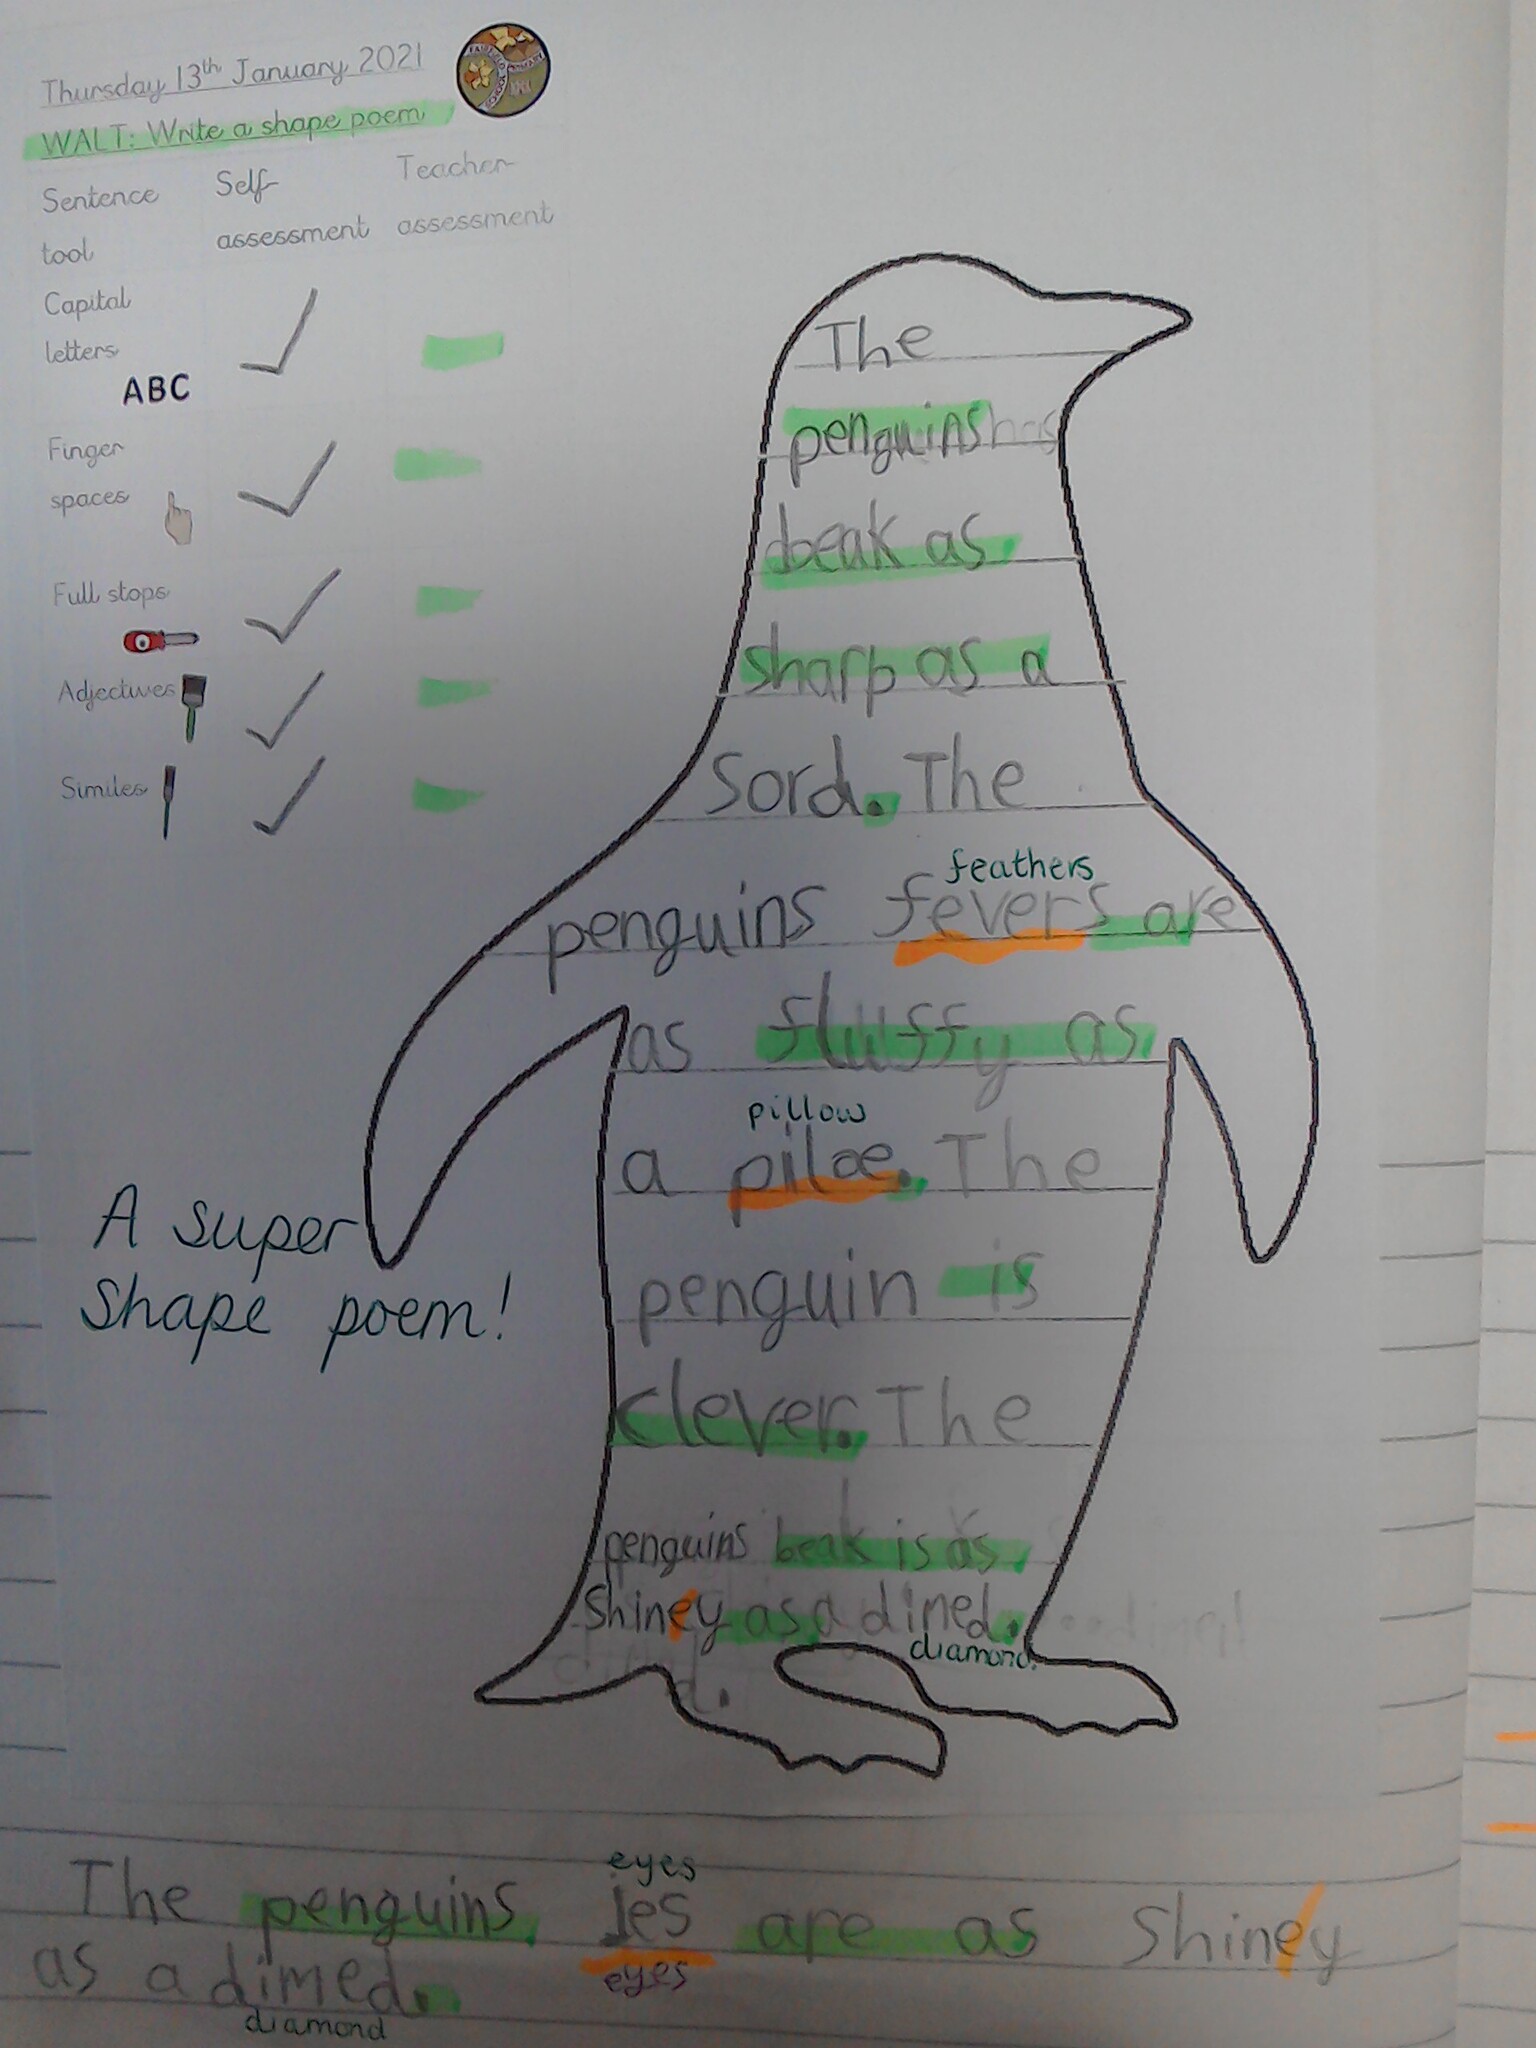 Thursday 13th January 2021
WALT: Write a shape poem
Sentence tool
Self-assessment
Teacher assessment
Capital letters
ABC
Finger spaces
Full stops
Adjectives
Similes
The
penguins has
beak as
sharp as a
Sord. The
feathers
penguins fevers are
as fluffy as
pillow
a piloe. The
penguin is
clever. The
penguins beak is as
Shiney as a dimed.
diamond.
A super
Shape poem!
eyes
The penguins ies are as Shiney
eyes
as a dimed.
diamond